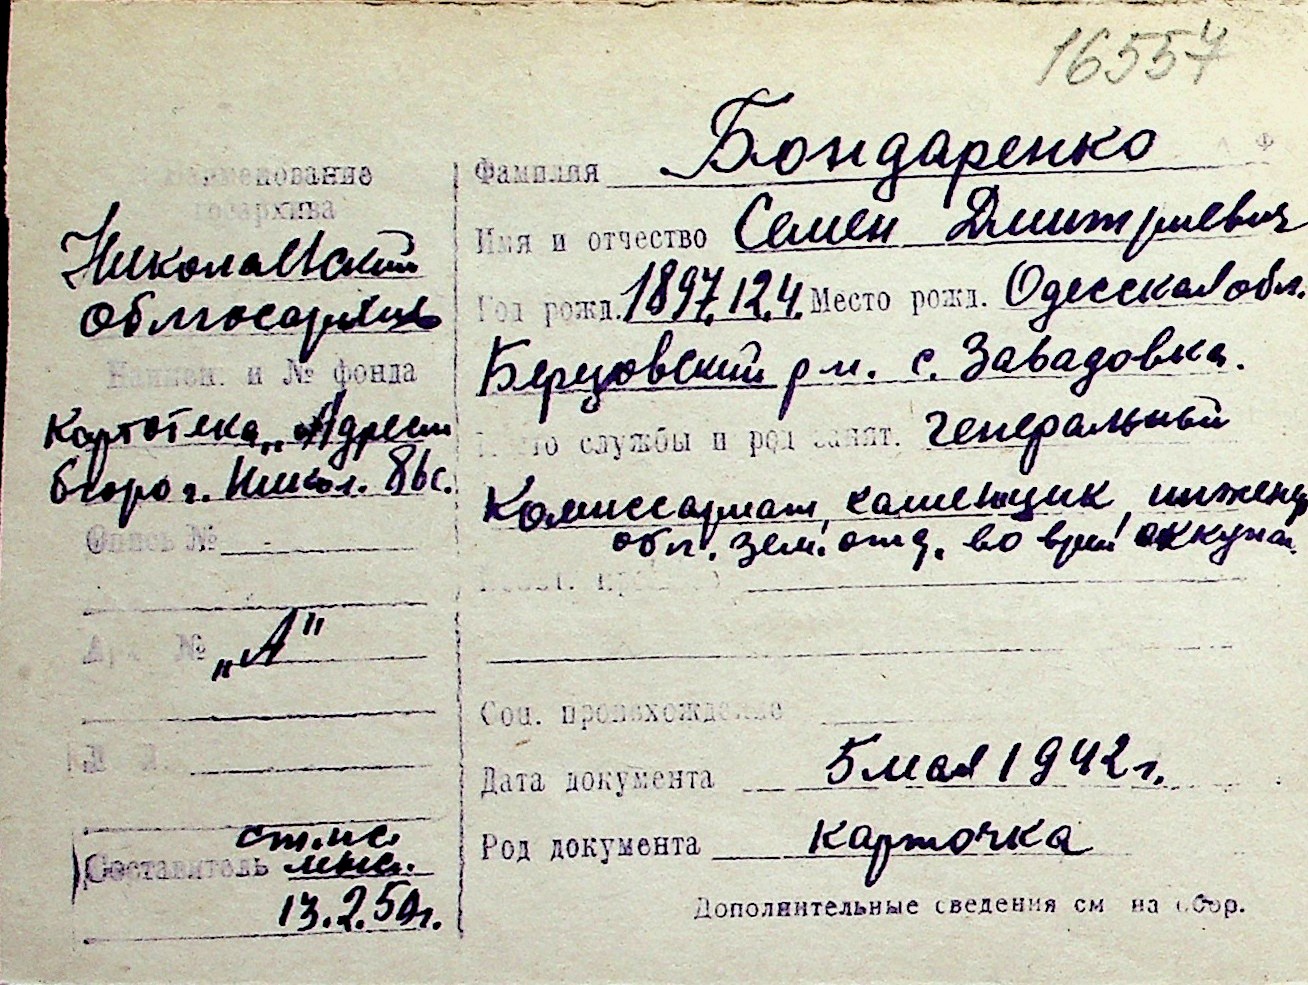 16557
Наименование
госархива
Николаевский
облгосархив
Наимен. и № фонда
Картотека „Адресн
бюро г. Никол.
Опись №
Арх №
„А"
Составитель
13.2.50г.
Фамилия Бондаренко
Имя и отчество Семен Дмитриевич
Год рожд. 1897.12.4. Место рожд. Одесская обл.
р-н. с. Завадовка.
службы и род занят. генеральный
Комиссариат, каменщик, инженер
обл. зем. отд. во врем оккупац.
Соц. происхождение
Дата документа 5 мая 1942 г.
Род документа карточка
Дополнительные сведения см на обор.